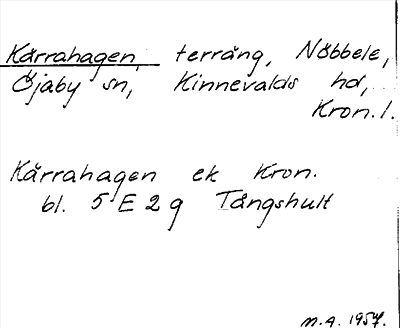 Kärrahagen, terräng, Nöbbele,
Öjaby sn, Kinnevalds hd,
Kron. l.
Kärrahagen ek Kron.
bl. 5 E 2 g Tångshult
M.A. 1957.